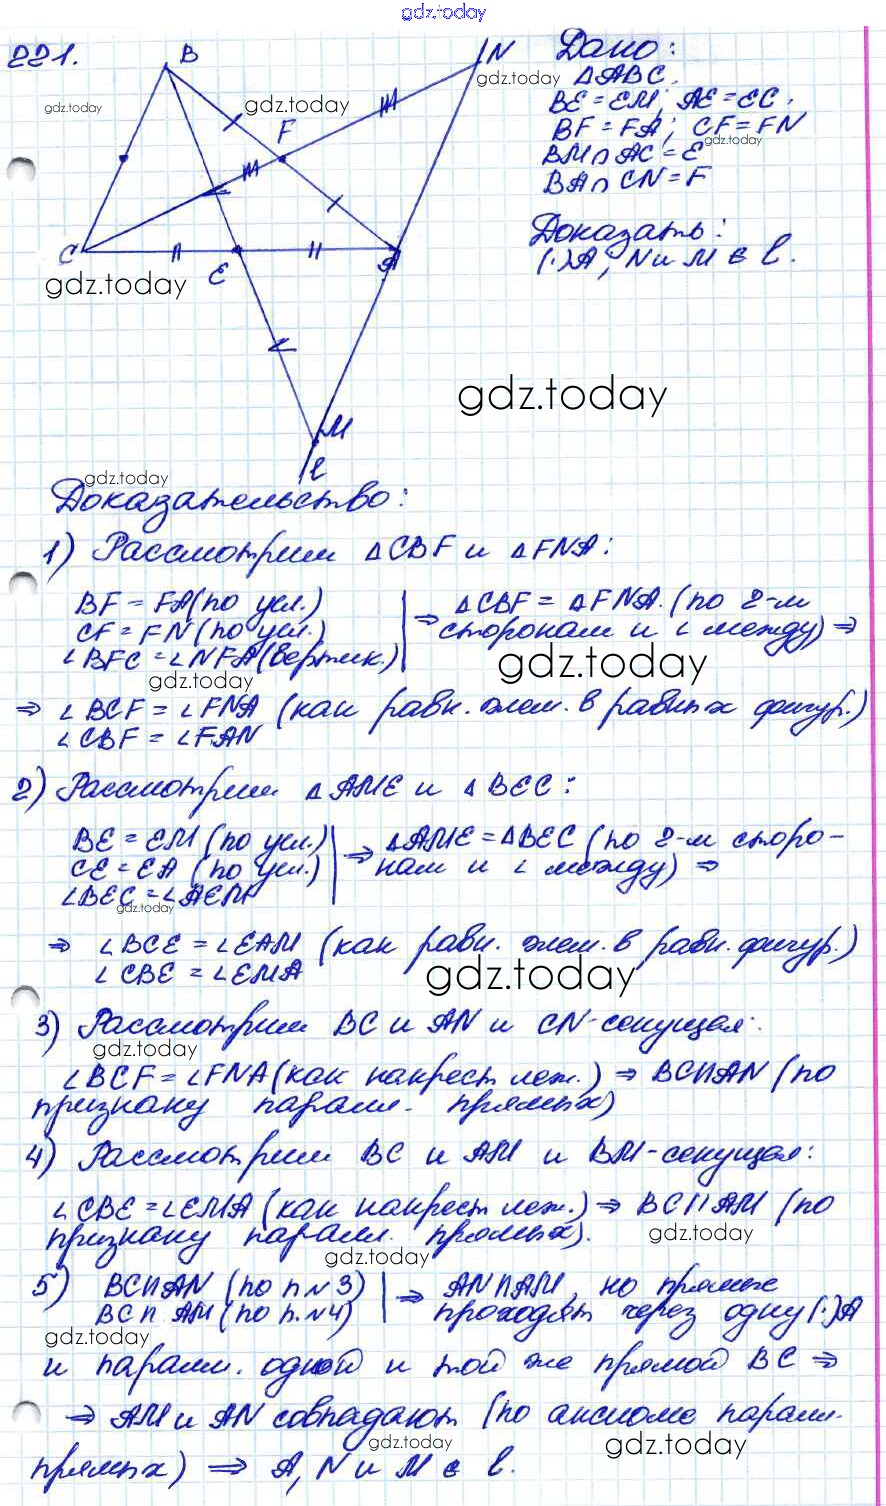 gdz.today
221.
B
N
Дано:
gdz.today
△ABC.
gdz.today
gdz.today
BE = EM; AE = EC.
F
BF = FA; CF = FN
gdz.today
BM ∩ AC = E
BA ∩ CN = F
C
E
A
Доказать:
(·)A, N и M ∈ l.
gdz.today
gdz.today
M
l
gdz.today
Доказательство:
1) Рассмотрим △CBF и △FNA:
BF = FA (по усл.)
CF = FN (по усл.)
∠BFC = ∠NFA (вертик.)
⇒ △CBF = △FNA. (по 2-м
сторонам и ∠ между) ⇒
gdz.today
gdz.today
⇒ ∠BCF = ∠FNA (как равн. элем. в равных фигур.)
∠CBF = ∠FAN
2) Рассмотрим △AME и △BEC:
BE = EM (по усл.)
CE = EA (по усл.)
∠BEC = ∠AEM
⇒ △AME = △BEC (по 2-м сторо-
нам и ∠ между) ⇒
gdz.today
⇒ ∠BCE = ∠EAM (как равн. элем. в равн. фигур.)
∠CBE = ∠EMA
gdz.today
3) Рассмотрим BC и AN и CN-секущая:
gdz.today
∠BCF = ∠FNA (как накрест леж.) ⇒ BC II AN (по
признаку паралл. прямых)
4) Рассмотрим BC и AM и BM-секущая:
∠CBE = ∠EMA (как накрест леж.) ⇒ BC II AM (по
признаку паралл. прямых).
gdz.today
gdz.today
5) BC II AN (по п №3)
BC II AM (по п. №4)
⇒ AN II AM, но прямые
проходят через одну (·)A
gdz.today
и паралл. одной и той же прямой BC ⇒
⇒ AM и AN совпадают (по аксиоме паралл.
gdz.today
gdz.today
прямых) ⇒ A, N и M ∈ l.